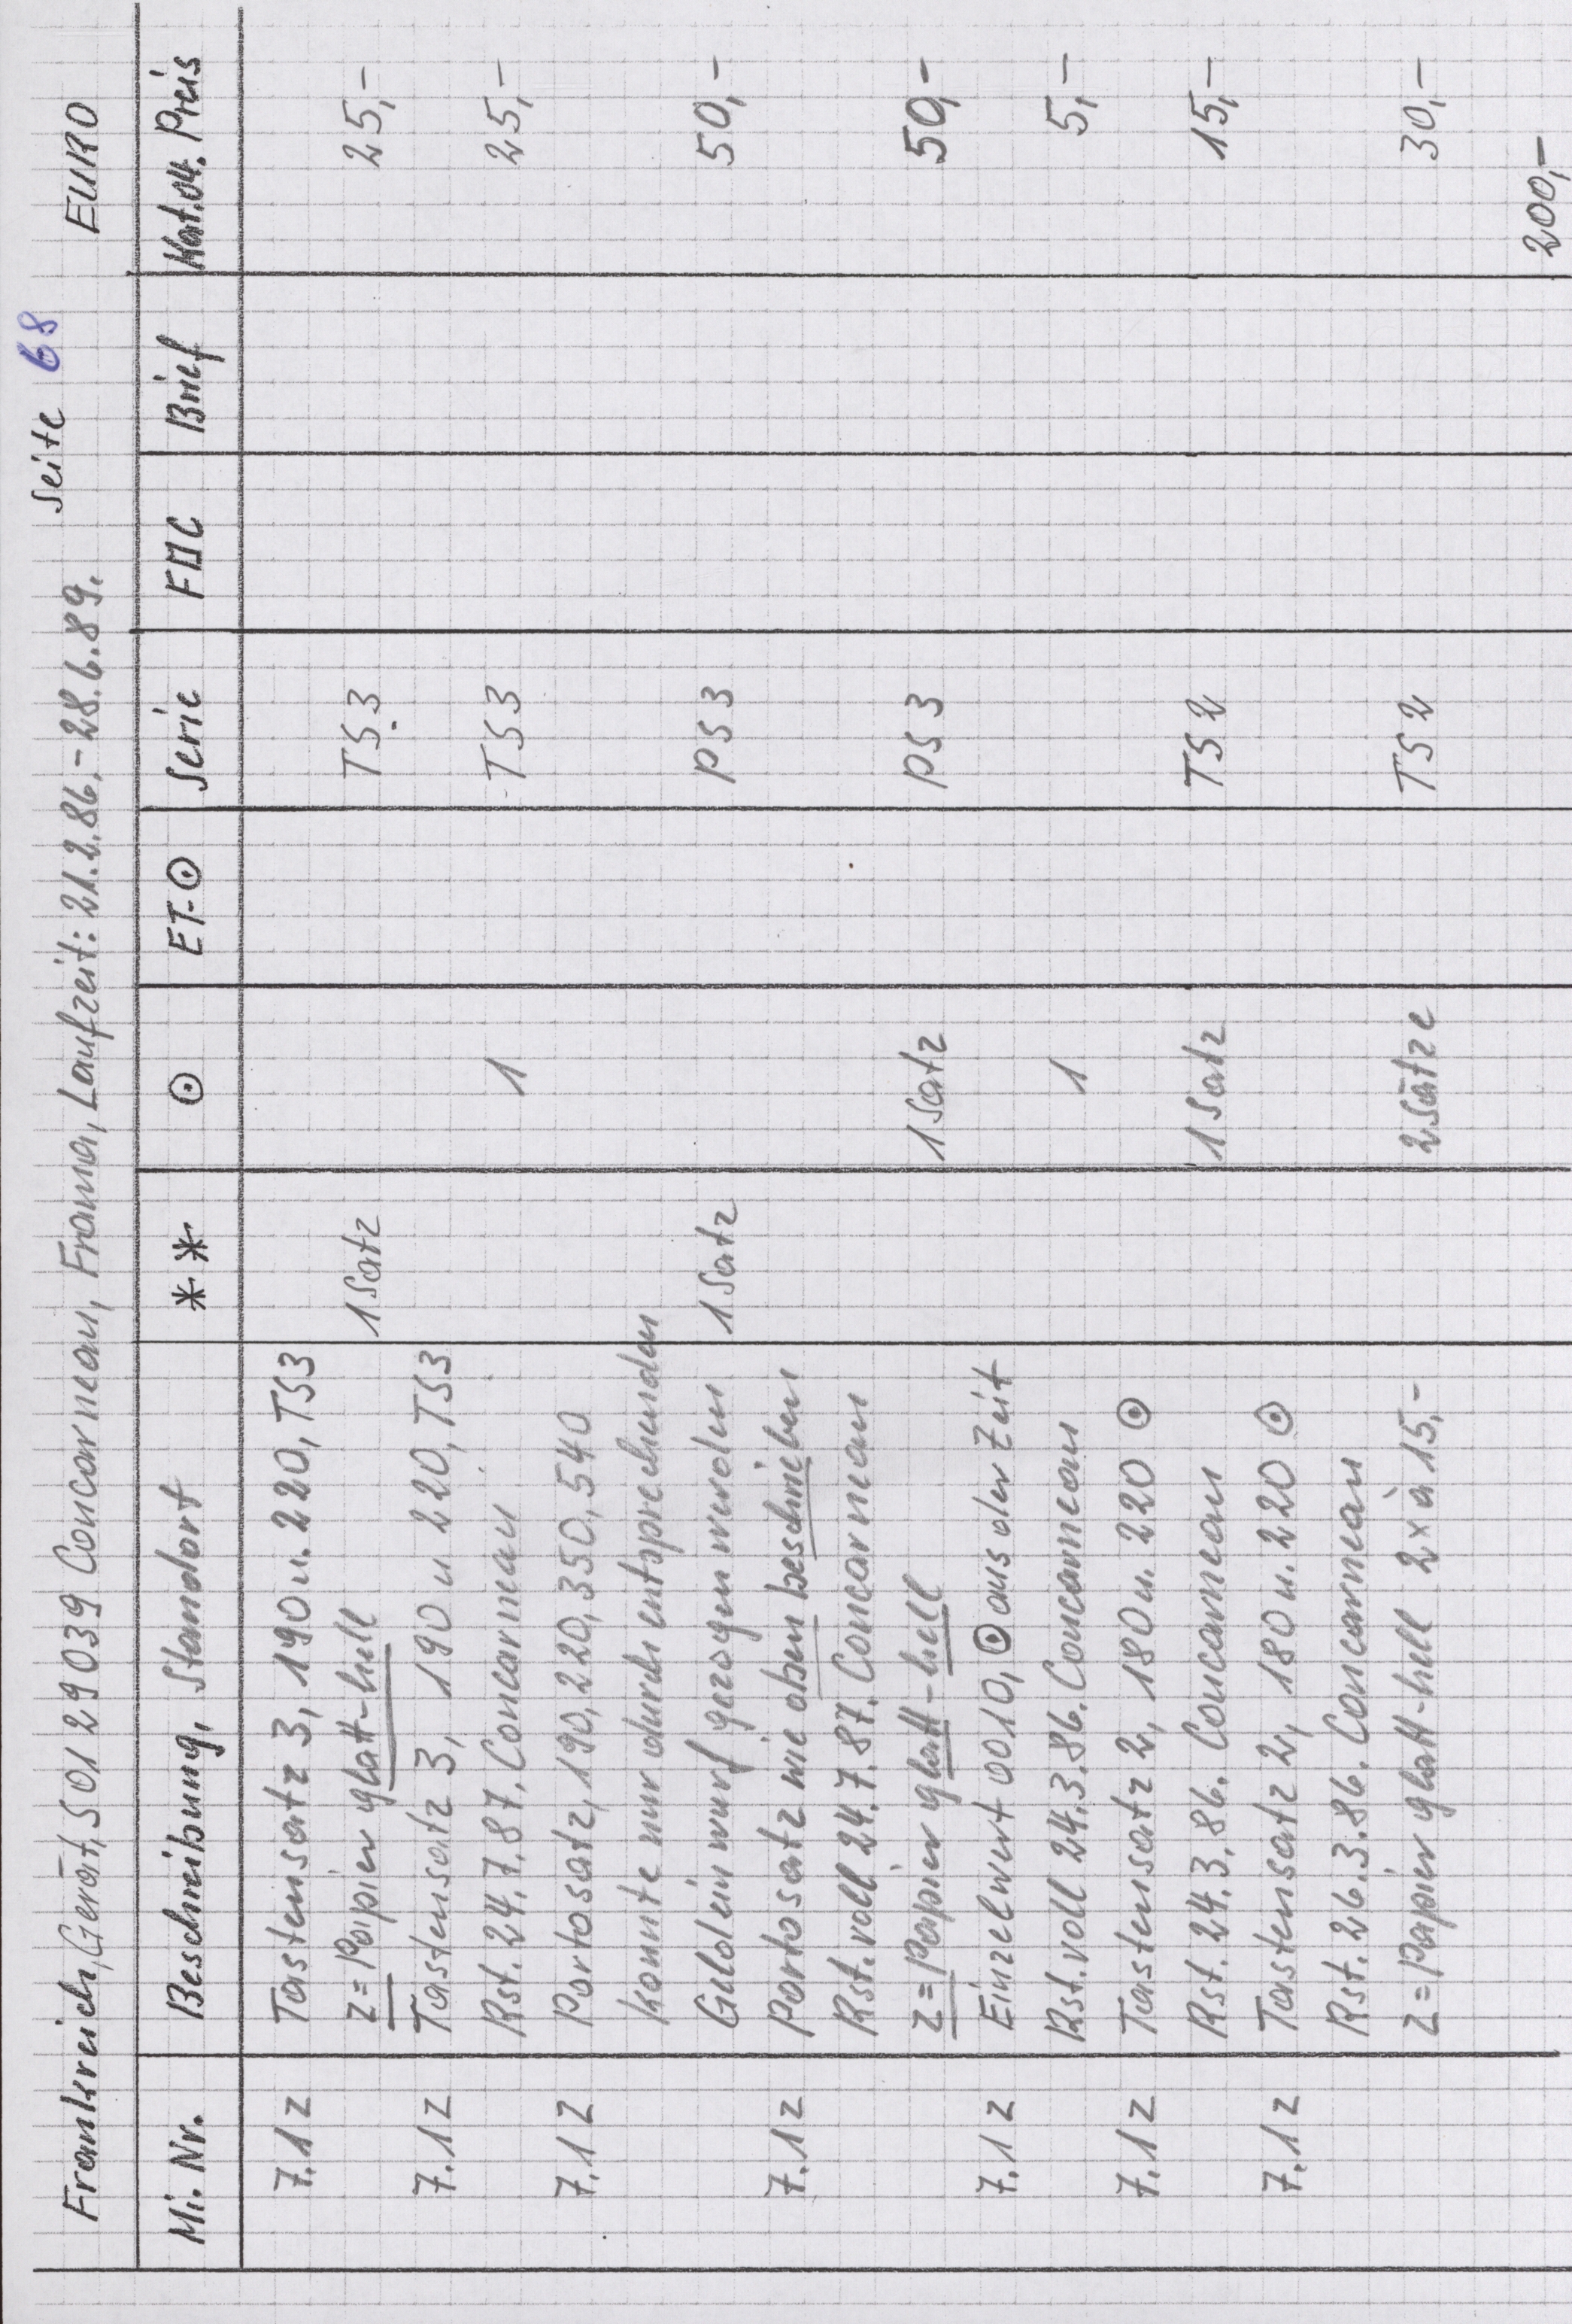 Seite 68
Frankreich, Gerät, 501 29 039 Concarneau, Frama, Laufzeit: 21.2.86.-28.6.89. EURO
Mi. Nr. Beschreibung, Standort ** ⊙ ET-⊙ Serie FDC Brief Kat.04. Preis
7.1z Tastensatz 3, 190 u. 220, TS3
z = Papier glatt-hell 1 Satz TS.3 25,-
7.1z Tastensatz 3, 190 u 220, TS3
Rst. 24.7.87. Concarneau 1 TS3 25,-
7.1z Portosatz, 190, 220, 350, 540
konnte nur durch entsprechenden
Geldeinwurf gezogen werden 1 Satz PS3 50,-
7.1z Portosatz wie oben beschrieben
Rst. voll 24.7.87. Concarneau
z = Papier glatt-hell 1 Satz PS3 50,-
7.1z Einzelwert 0010, ⊙ aus der Zeit
Rst. voll 24.3.86. Concarneau 1 5,-
7.1z Tastensatz 2, 180 u. 220 ⊙
Rst. 24.3.86. Concarneau 1 Satz TS2 15,-
7.1z Tastensatz 2, 180 u. 220 ⊙
Rst. 26.3.86. Concarneau
z = Papier glatt-hell 2 x à 15,- 2 Sätze TS2 30,-
200,-